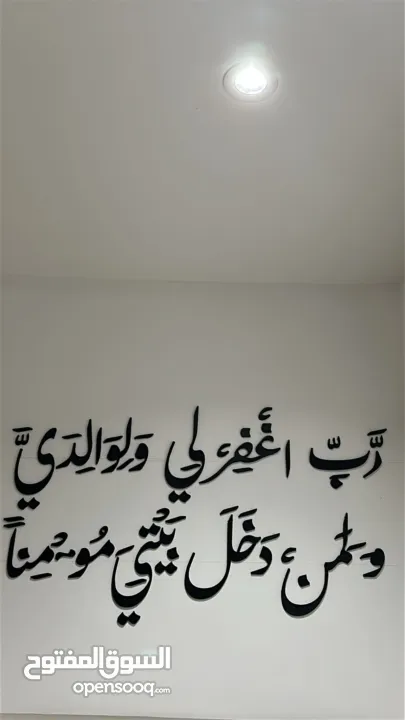 رَبِّ اغْفِرْ لِي وَلِوَالِدَيَّ
وَلِمَنْ دَخَلَ بَيْتِيَ مُؤْمِناً
السوق المفتوح
opensooq.com